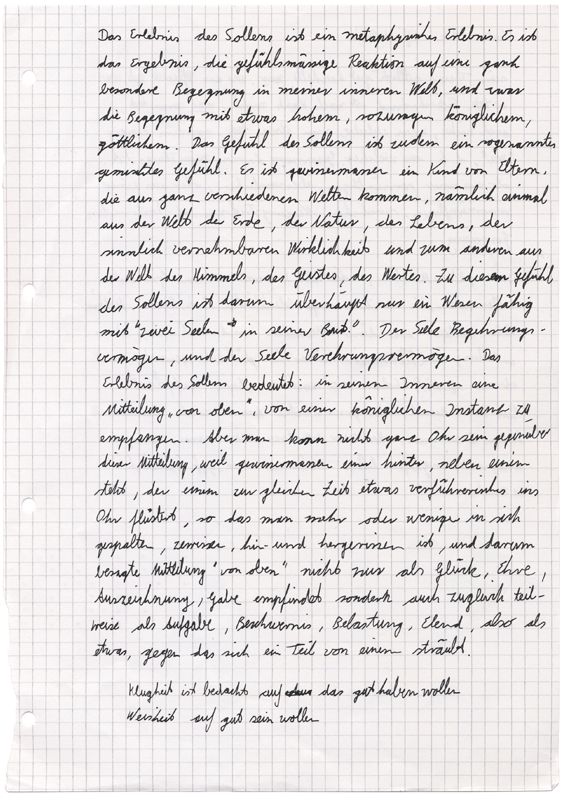 Das Erlebnis des Sollens ist ein metaphysisches Erlebnis. Es ist
das Ergebnis, die gefühlsmässige Reaktion auf eine ganz
besondere Begegnung in meiner inneren Welt, und zwar
die Begegnung mit etwas hohem, sozusagen königlichem,
göttlichem. Das Gefühl des Sollens ist zudem ein sogenanntes
gemischtes Gefühl. Es ist gewissermassen ein Kind von Eltern,
die aus ganz verschiedenen Welten kommen, nämlich einmal
aus der Welt der Erde, der Natur, des Lebens, der
sinnlich vernehmbaren Wirklichkeit und zum anderen aus
der Welt des Himmels, des Geistes, des Wertes. Zu diesem Gefühl
des Sollens ist darum überhaupt nur ein Wesen fähig
mit "zwei Seelen in seiner Brust". Der Seele Begehrungs-
vermögen, und der Seele Verehrungsvermögen. Das
Erlebnis des Sollens bedeutet: in seinem Inneren eine
Mitteilung "von oben", von einer königlichen Instanz zu
empfangen. Aber man kann nicht ganz Ohr sein gegenüber
dieser Mitteilung, weil gewissermassen einer hinter, neben einem
steht, der einem zur gleichen Zeit etwas verführerisches ins
Ohr flüstert, so das man mehr oder weniger in sich
gespalten, zerrissen, hin- und hergerissen ist, und darum
besagte Mitteilung "von oben" nicht nur als Glück, Ehre,
Auszeichnung, Gabe empfindet sondern auch zugleich teil-
weise als Aufgabe, Beschwernis, Belastung, Elend, also als
etwas, gegen das sich ein Teil von einem sträubt.
Klugheit ist bedacht auf das gut haben wollen
Weisheit auf gut sein wollen